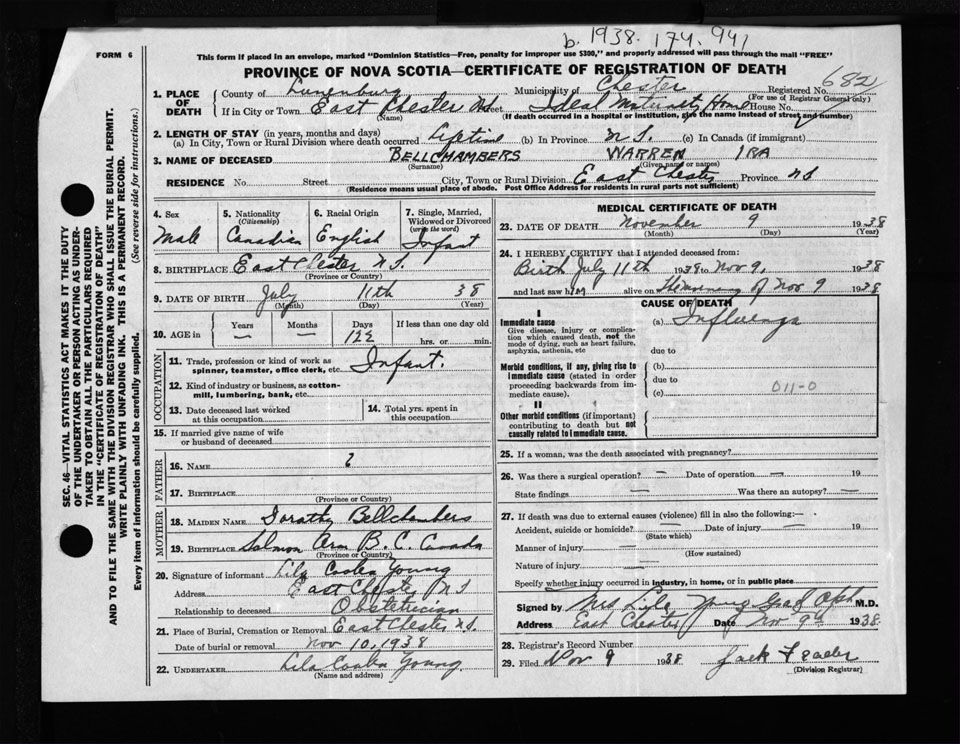 b. 1938. 174,941
FORM 6
This form if placed in an envelope, marked "Dominion Statistics—Free, penalty for improper use $300," and properly addressed will pass through the mail "FREE"
PROVINCE OF NOVA SCOTIA—CERTIFICATE OF REGISTRATION OF DEATH
682
1. PLACE OF DEATH
County of Lunenburg Municipality of Chester Registered No.
(For use of Registrar General only)
If in City or Town East Chester N.S. Street Ideal Maternity Home House No.
(Name) (If death occurred in a hospital or institution, give the name instead of street and number)
2. LENGTH OF STAY (in years, months and days)
(a) In City, Town or Rural Division where death occurred Lifetime (b) In Province N.S. (c) In Canada (if immigrant)
3. NAME OF DECEASED BELLCHAMBERS WARREN IRA
(Surname) (Given name or names)
RESIDENCE No. Street City, Town or Rural Division East Chester Province NS
(Residence means usual place of abode. Post Office Address for residents in rural parts not sufficient)
4. Sex
Male
5. Nationality
(Citizenship)
Canadian
6. Racial Origin
English
7. Single, Married, Widowed or Divorced
(write the word)
Infant
8. BIRTHPLACE East Chester N.S.
(Province or Country)
9. DATE OF BIRTH July 11th 38
(Month) (Day) (Year)
10. AGE in
Years Months Days If less than one day old
— — 122 hrs. or min.
OCCUPATION
11. Trade, profession or kind of work as spinner, teamster, office clerk, etc. Infant.
12. Kind of industry or business, as cotton-mill, lumbering, bank, etc.
13. Date deceased last worked at this occupation
14. Total yrs. spent in this occupation
15. If married give name of wife or husband of deceased
FATHER
16. NAME ?
17. BIRTHPLACE
(Province or Country)
MOTHER
18. MAIDEN NAME Dorothy Bellchambers
19. BIRTHPLACE Salmon Arm B. C. Canada
(Province or Country)
20. Signature of informant Lila Coolen Young
Address East Chester N S
Relationship to deceased Obstetrician
21. Place of Burial, Cremation or Removal East Chester N.S.
Date of burial or removal Nov 10, 1938
22. UNDERTAKER Lila Coolen Young.
(Name and address)
MEDICAL CERTIFICATE OF DEATH
23. DATE OF DEATH November 9 1938
(Month) (Day) (Year)
24. I HEREBY CERTIFY that I attended deceased from:
Birth July 11th 1938 to Nov 9, 1938
and last saw him alive on the morning of Nov 9 1938
CAUSE OF DEATH
I
Immediate cause
Give disease, injury or complication which caused death, not the mode of dying, such as heart failure, asphyxia, asthenia, etc
(a) Influenza
due to
Morbid conditions, if any, giving rise to immediate cause (stated in order proceeding backwards from immediate cause).
(b)
due to
(c) 011-0
II
Other morbid conditions (if important) contributing to death but not causally related to immediate cause.
25. If a woman, was the death associated with pregnancy?
26. Was there a surgical operation? — Date of operation — 19
State findings — Was there an autopsy? —
27. If death was due to external causes (violence) fill in also the following:—
Accident, suicide or homicide? — Date of injury — 19
(State which)
Manner of injury —
(How sustained)
Nature of injury —
Specify whether injury occurred in industry, in home, or in public place
Signed by Mrs Lila Young M.D.
Address East Chester Date Nov 9th 1938.
28. Registrar's Record Number
29. Filed Nov 9 1938 Jack
(Division Registrar)
SEC. 46—VITAL STATISTICS ACT MAKES IT THE DUTY
OF THE UNDERTAKER OR PERSON ACTING AS UNDER-
TAKER TO OBTAIN ALL THE PARTICULARS REQUIRED
IN THE "CERTIFICATE OF REGISTRATION OF DEATH"
AND TO FILE THE SAME WITH THE DIVISION REGISTRAR WHO SHALL ISSUE THE BURIAL PERMIT.
WRITE PLAINLY WITH UNFADING INK. THIS IS A PERMANENT RECORD.
Every item of information should be carefully supplied. (See reverse side for instructions.)